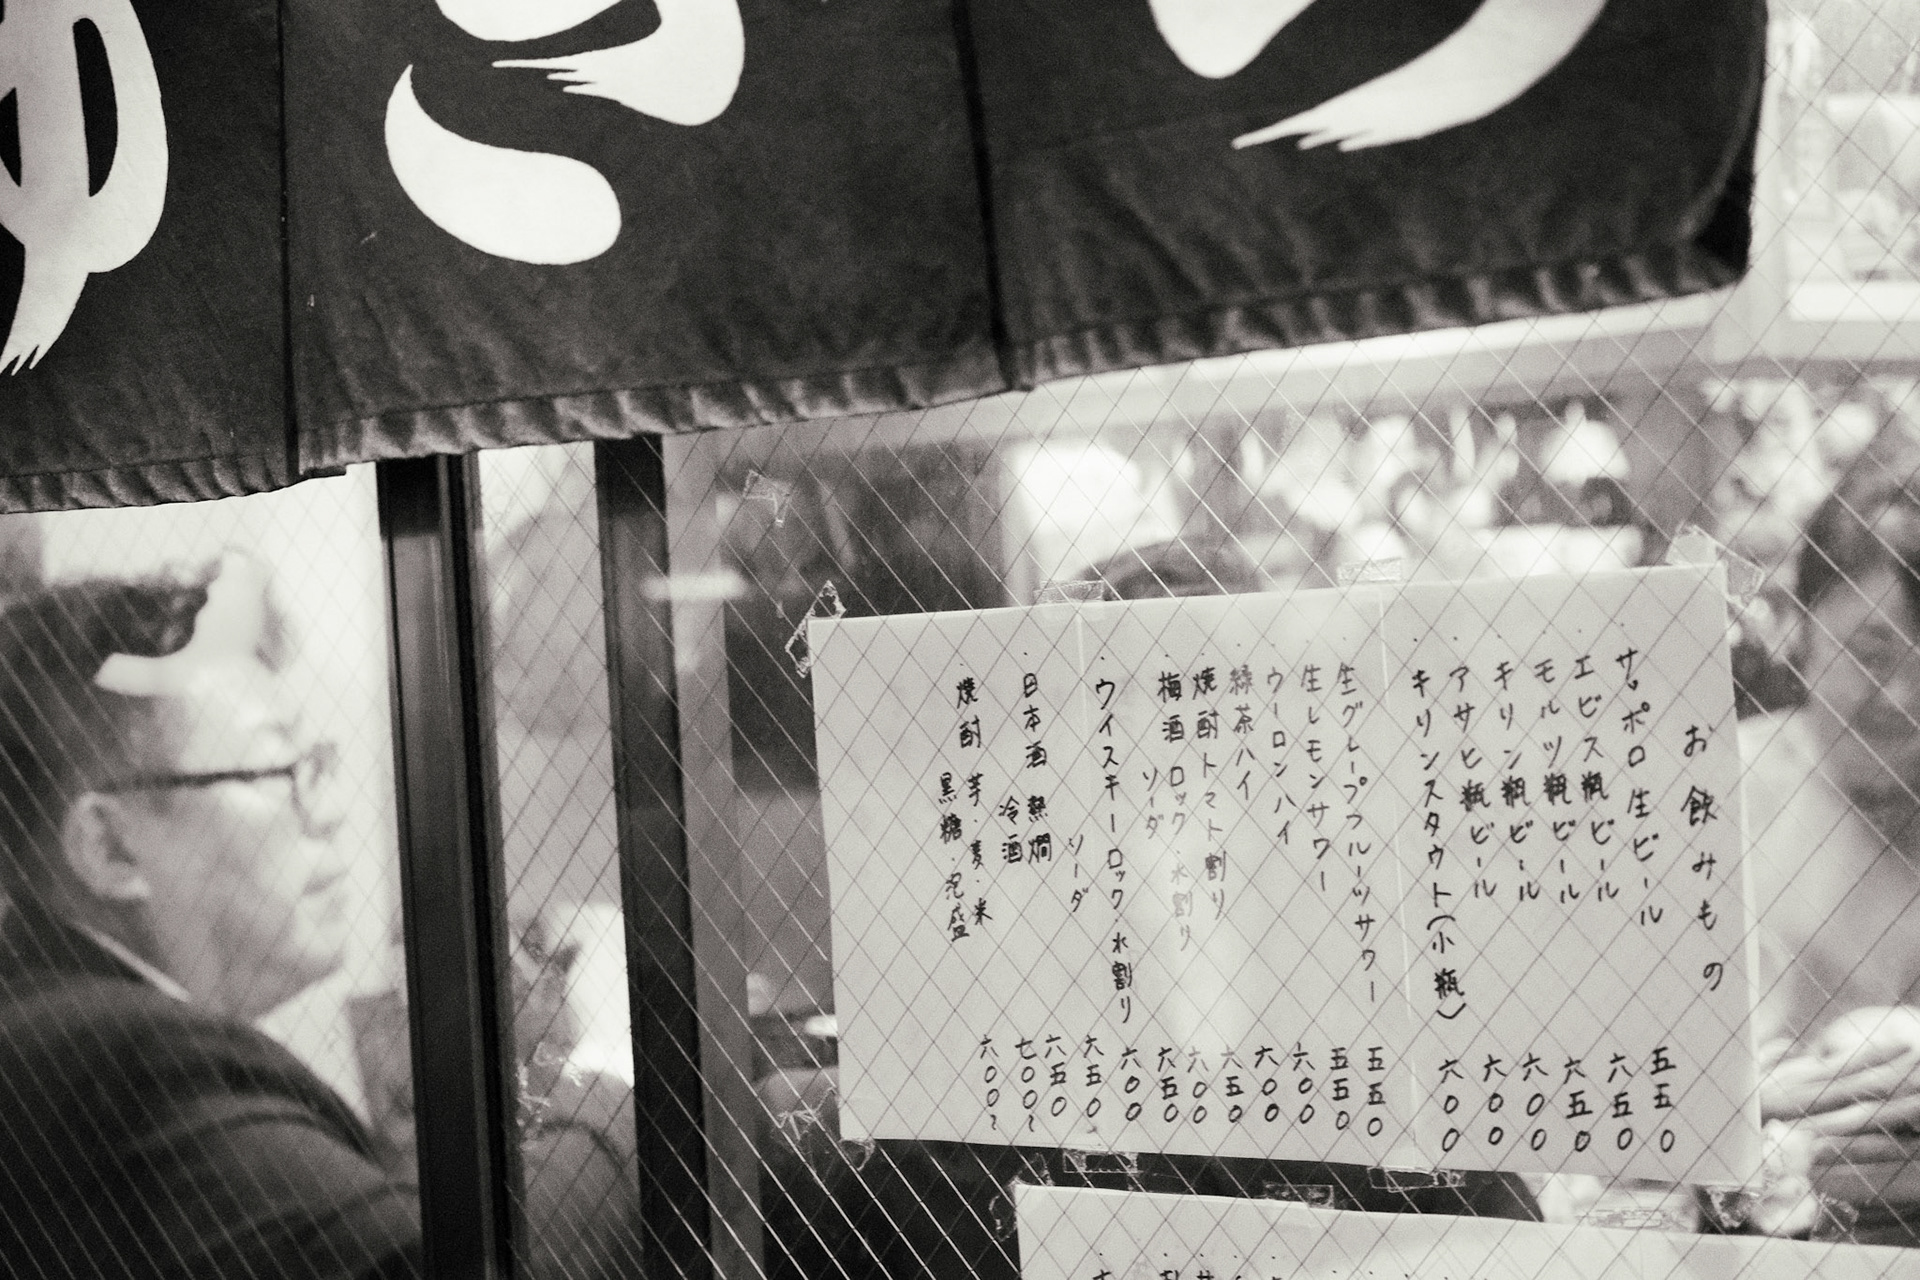 お飲みもの
・サッポロ生ビール 五五〇
・エビス瓶ビール 六五〇
・モルツ瓶ビール 六五〇
・キリン瓶ビール 六〇〇
・アサヒ瓶ビール 六〇〇
・キリンスタウト(小瓶) 六〇〇
・生グレープフルーツサワー 五五〇
・生レモンサワー 五五〇
・ウーロンハイ 六〇〇
・緑茶ハイ 六〇〇
・焼酎トマト割り 六五〇
・梅酒 ロック・水割り 六〇〇
ソーダ 六五〇
・ウイスキーロック・水割り 六〇〇
ソーダ 六五〇
・日本酒 熱燗 六五〇
冷酒 七〇〇〜
・焼酎 芋・麦・米 六〇〇〜
黒糖・泡盛